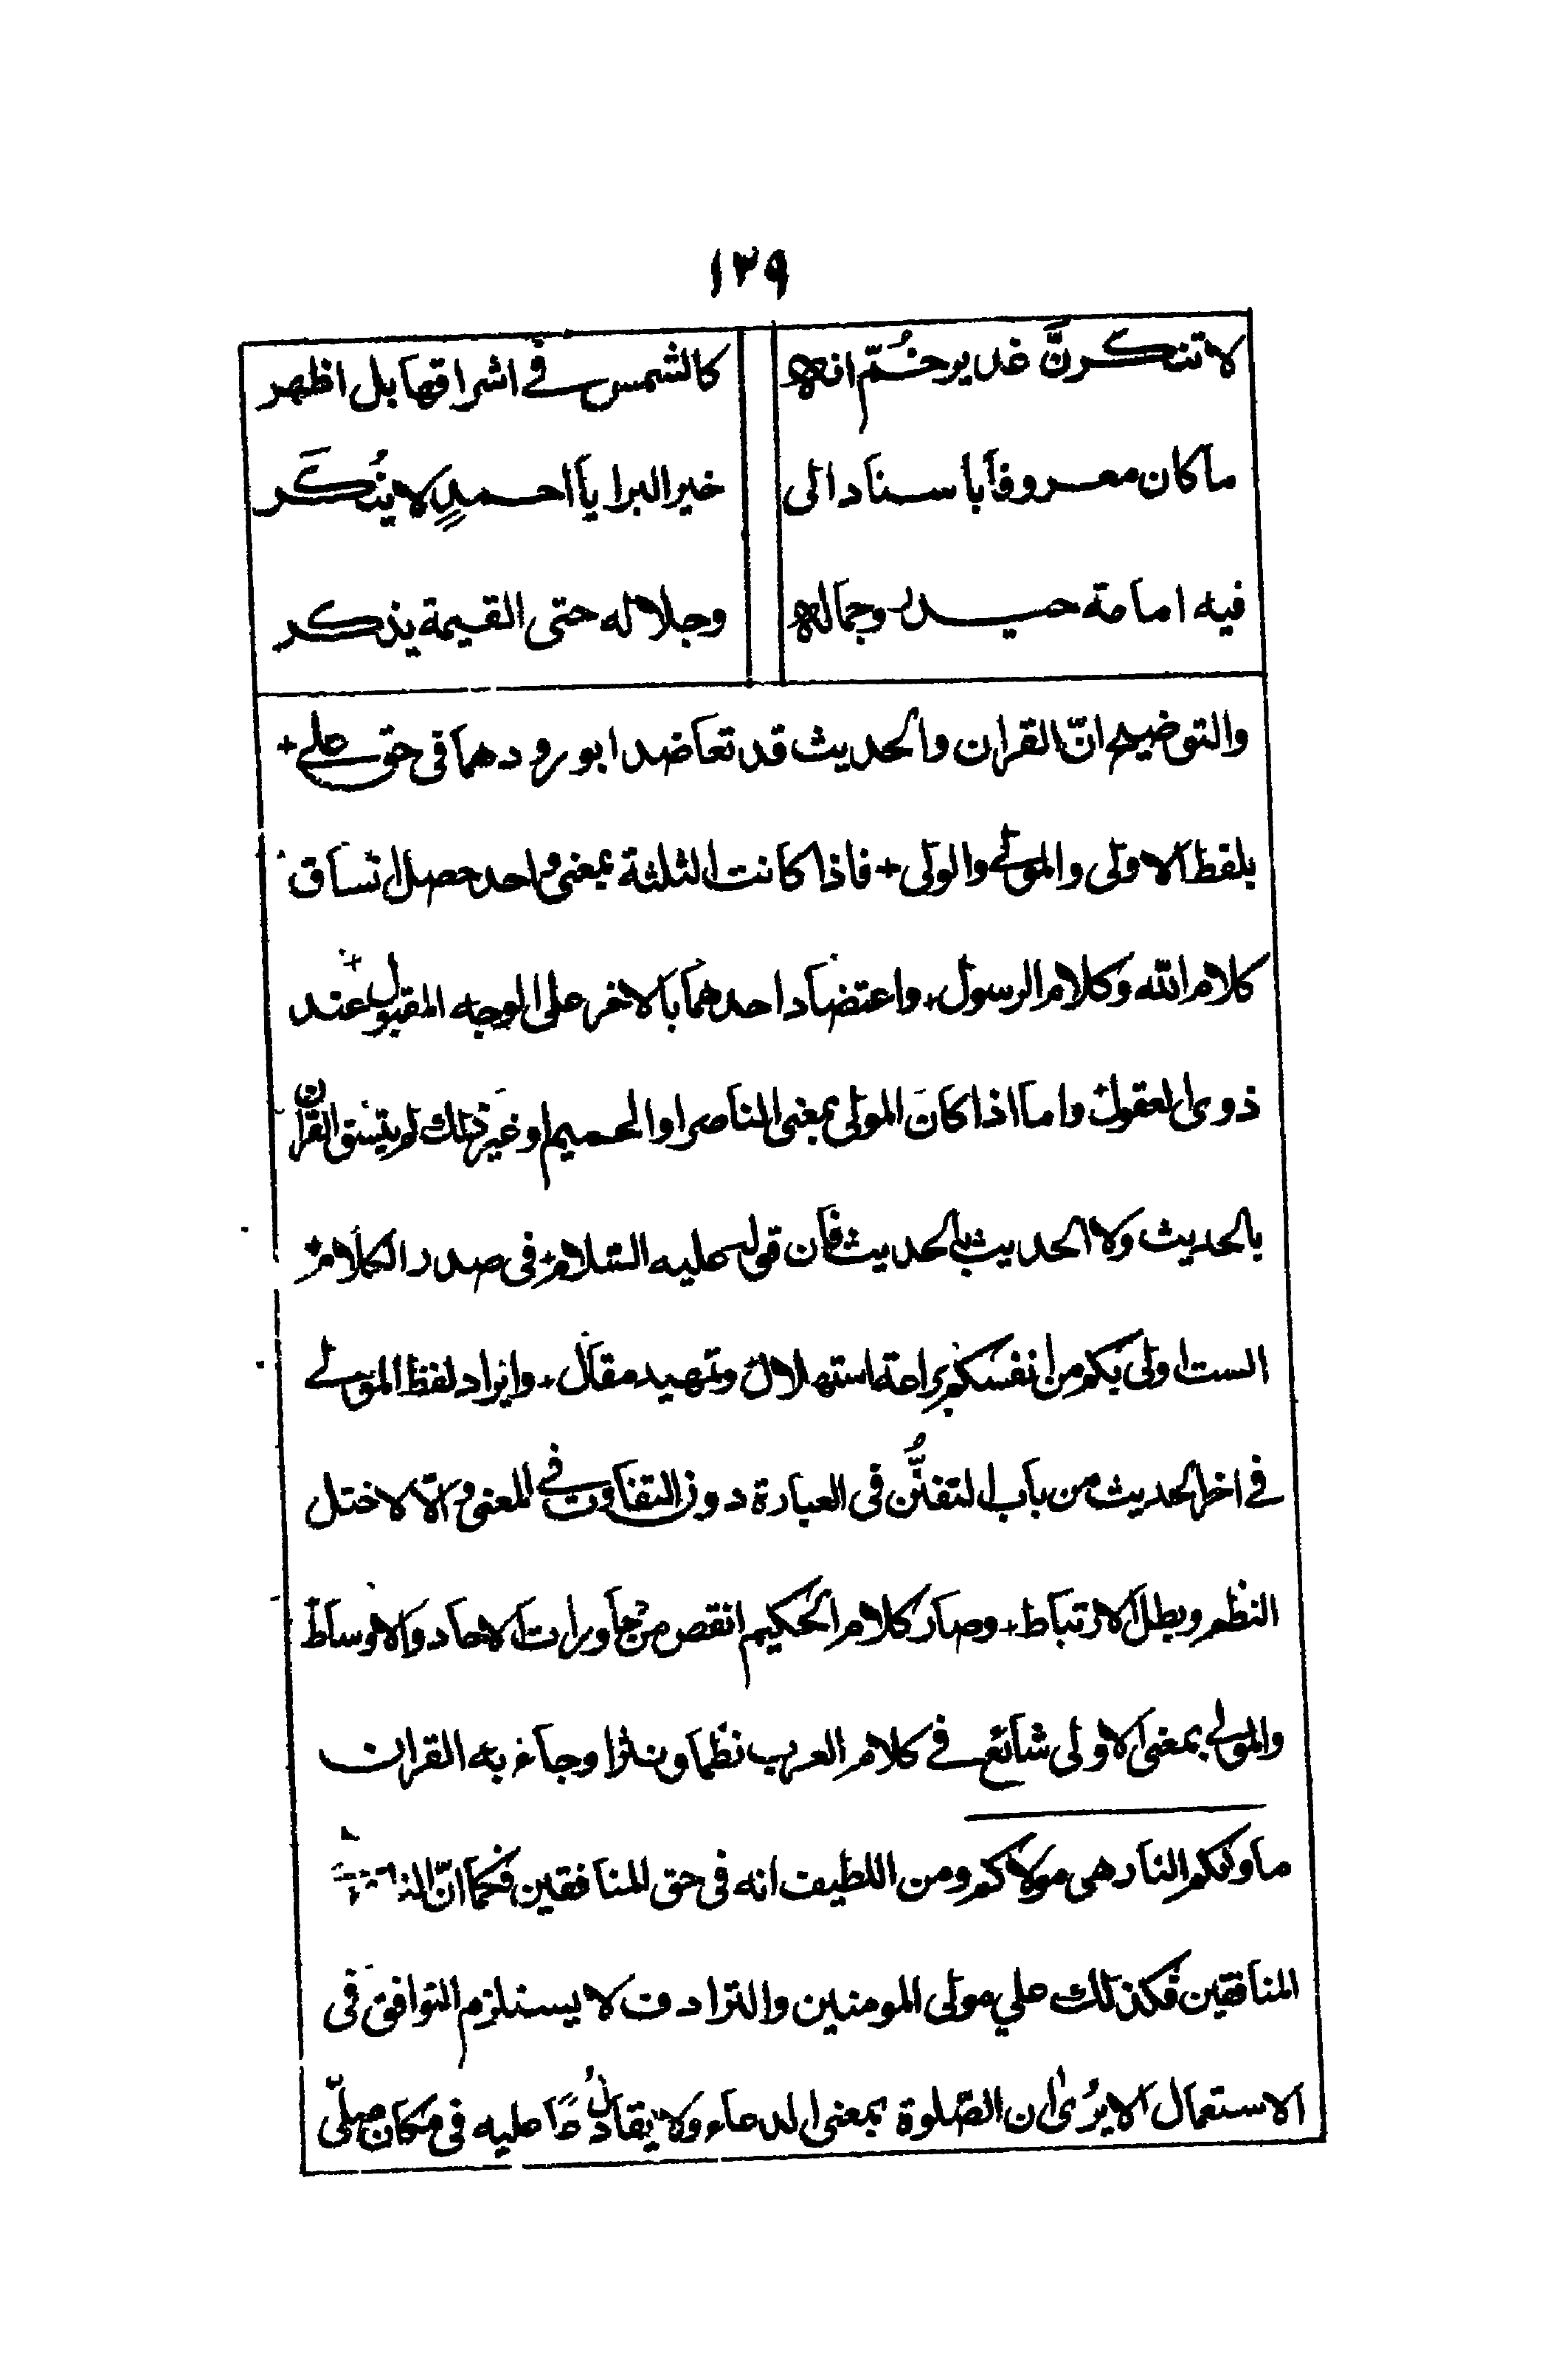 ١٣٩
لا تنكرنَّ غدير خُمّ انه كالشمس في اشراقها بل اظهر
ما كان معروفا باسناد الى خير البرايا احمدٍ لا يُنكَر
فيه امامة حيدر وجماله وجلاله حتى القيمة يذكر
والتوضيح انّ القران والحديث قد تعاضدا بورودهما في حق علي +
بلفظ الاولى والمولى والولى + فاذا كانت الثلثة بمعنى واحد حصل اتساق
كلام الله وكلام الرسول + واعتضاد احدهما بالاخر على الوجه المقبول عند +
ذوى العقول واما اذا كان المولى بمعنى الناصر او الحميم او غير ذلك لم يتسق القران
بالحديث ولا الحديث بالحديث فان قوله عليه السّلام + في صدر الكلام +
الست اولى بكم من انفسكم براعة استهلال وتمهيد مقال + وايراد لفظ المولى
في اخر الحديث من باب التفنُّن في العبارة دون التفاوت في المعنى والّا لاختل
النظم وبطل الارتباط + وصار كلام الحكيم انقص من محاورات الاحاد والاوساط
والمولى بمعنى الاولى شائع في كلام العرب نظما ونثرا وجاء به القران
ماوٰلكم النار هى مولاكم ومن اللطيف انه في حق المنافقين فكما انّ
المنافقين فكذلك علي مولى المومنين والترادف لا يستلزم التوافق في
الاستعمال الا يُرى ان الصّلوة بمعنى الدعاء ولا يقال دعا عليه في مكان صلّى